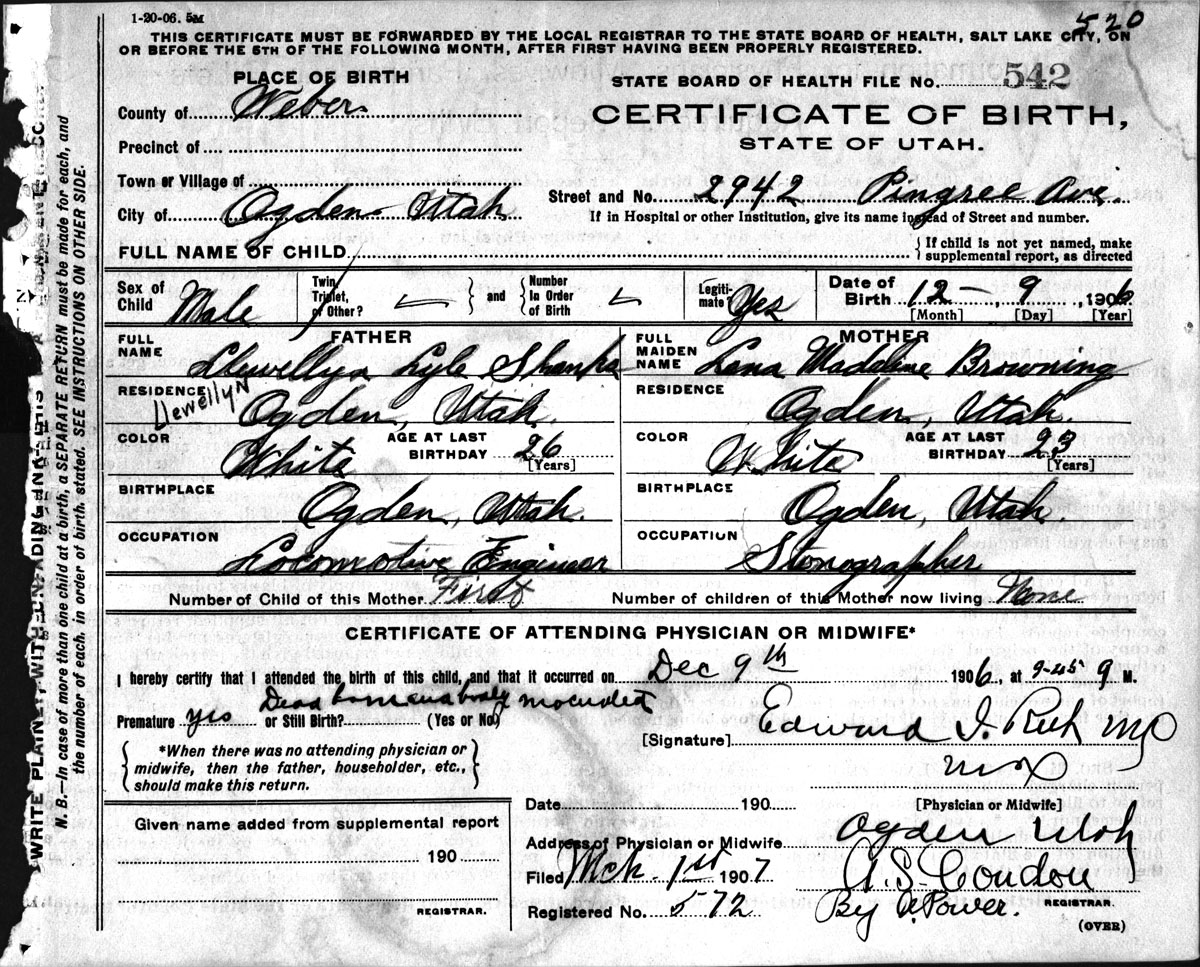 1-20-06. 5M
520
THIS CERTIFICATE MUST BE FORWARDED BY THE LOCAL REGISTRAR TO THE STATE BOARD OF HEALTH, SALT LAKE CITY, ON
OR BEFORE THE 5TH OF THE FOLLOWING MONTH, AFTER FIRST HAVING BEEN PROPERLY REGISTERED.
PLACE OF BIRTH
STATE BOARD OF HEALTH FILE NO. 542
County of Weber
CERTIFICATE OF BIRTH,
Precinct of
STATE OF UTAH.
Town or Village of
Street and No. 2942 Pingree Ave.
City of Ogden Utah
If in Hospital or other Institution, give its name instead of Street and number.
FULL NAME OF CHILD
{ If child is not yet named, make
supplemental report, as directed
Sex of Child Male
Twin, Triplet, or Other?
and
Number In Order of Birth
Legitimate Yes
Date of Birth 12 - 9, 1906
[Month] [Day] [Year]
FATHER
MOTHER
FULL NAME Llewellyn Lyle Shanks
FULL MAIDEN NAME Lana Madeline Browning
RESIDENCE Ogden, Utah.
Llewellyn
RESIDENCE Ogden, Utah.
COLOR White AGE AT LAST BIRTHDAY 26 [Years]
COLOR White AGE AT LAST BIRTHDAY 23 [Years]
BIRTHPLACE Ogden, Utah.
BIRTHPLACE Ogden, Utah.
OCCUPATION Locomotive Engineer
OCCUPATION Stenographer
Number of Child of this Mother First
Number of children of this Mother now living None
CERTIFICATE OF ATTENDING PHYSICIAN OR MIDWIFE*
I hereby certify that I attended the birth of this child, and that it occurred on Dec 9th 1906, at 9-45 M.
Dead born and body
Premature yes or Still Birth? (Yes or No)
[Signature] Edward I. Rich MD
*When there was no attending physician or
midwife, then the father, householder, etc.,
should make this return.
MD
[Physician or Midwife]
Date 190
Given name added from supplemental report
Address of Physician or Midwife Ogden Utah
190
Filed Mch. 1st 1907
A. S. Condon
Registered No. 572
By A. Power.
REGISTRAR.
REGISTRAR.
(OVER)
N. B.—In case of more than one child at a birth, a SEPARATE RETURN must be made for each, and
the number of each, in order of birth, stated. SEE INSTRUCTIONS ON OTHER SIDE.
WRITE PLAINLY WITH UNFADING INK—THIS